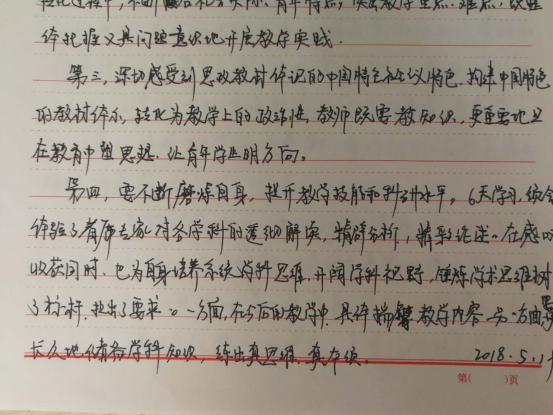 化过程中，不断结合社会实际、青年特点，突出教学重点、难点，既整
体把握又具问题意识地开展教学实践．
第三，深切感受到思政教材体识的中国特色社会主义特色．构建中国特色
的教材体系，转化为教学上的政治性，教师既要教知识，更重要地且
在教育中塑思想，让青年学生明方向。
第四，要不断磨炼自身，提升教学技能和科研水平。6天学习，综合
体验了着名专家对各学科的透彻解读，精辟分析，精彩论述。在感叹
收获同时，也为自身培养系统学科思维、开阔学科视野，锤炼学术思维树
了标杆，提出了要求。一方面，在今后的教学中，具体揣摩教学内容，另一方面
长久地储备学科知识，练出真思维、真本领．
2018.5.1
第( )页